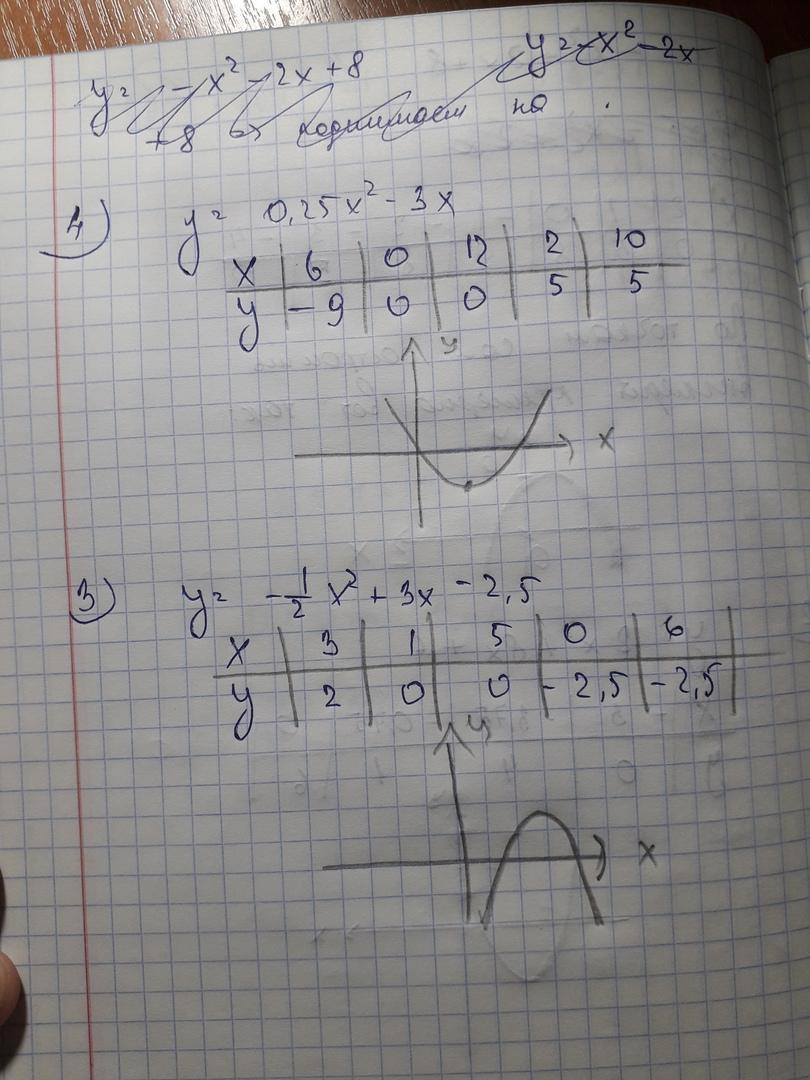 y = -x² - 2x + 8 y = -x² - 2x
+8 поднимаем на .
4) y = 0,25x² - 3x
x 6 0 12 2 10
y -9 0 0 5 5
y
x
3) y = -1/2 x² + 3x - 2,5
x 3 1 5 0 6
y 2 0 0 -2,5 -2,5
y
x